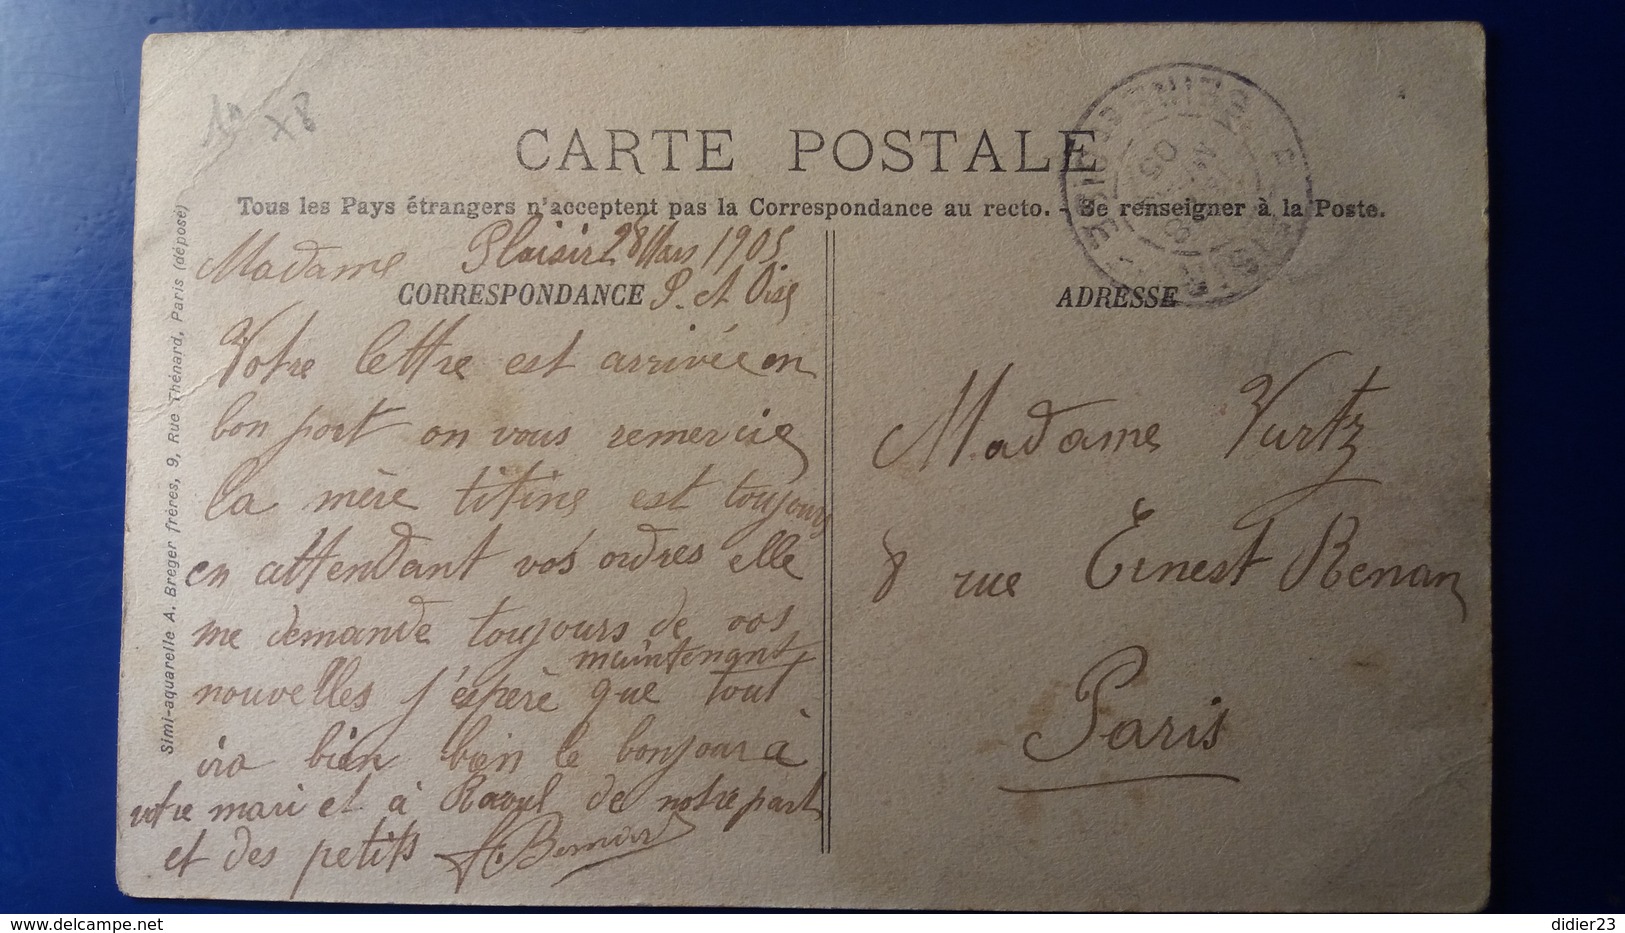 10
x8
CARTE POSTALE
Tous les Pays étrangers n'acceptent pas la Correspondance au recto. - Se renseigner à la Poste.
Simi-aquarelle A. Breger frères, 9, Rue Thénard, Paris (déposé)
Plaisir 28 Mars 1905
Madame
CORRESPONDANCE
S. et Oise
Votre lettre est arrivée en
bon port on vous remercie
la mère titine est toujours
en attendant vos ordres elle
me demande toujours de vos
maintenant
nouvelles j'espère que tout
ira bien bien le bonjour à
votre mari et à Raoul de notre part
et des petits
ADRESSE
Madame Vurtz
8 rue Ernest Renan
Paris
SEINE ET OISE
05
didier23